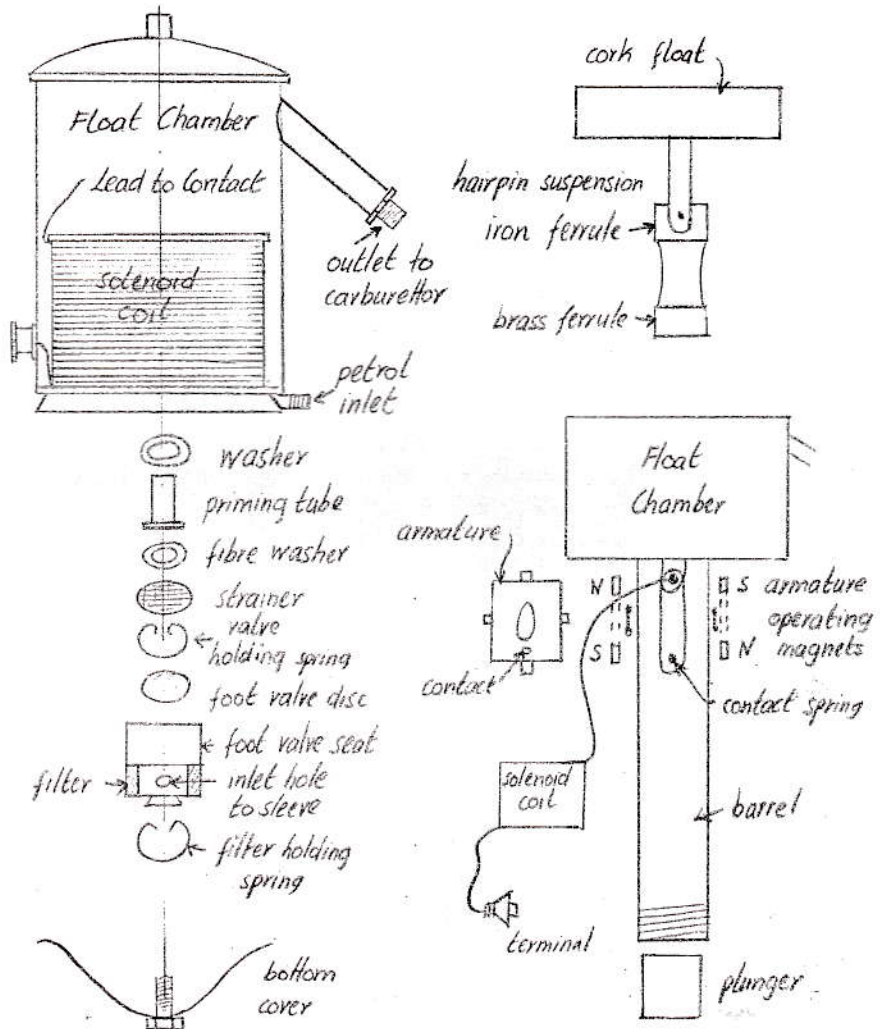 Float Chamber
Lead to Contact
solenoid
coil
outlet to
carburettor
petrol
inlet
washer
priming tube
fibre washer
strainer
valve
holding spring
foot valve disc
foot valve seat
filter
inlet hole
to sleeve
filter holding
spring
bottom
cover
cork float
hairpin suspension
iron ferrule
brass ferrule
Float
Chamber
armature
N
S
S armature
operating
N magnets
contact
contact spring
solenoid
coil
barrel
terminal
plunger